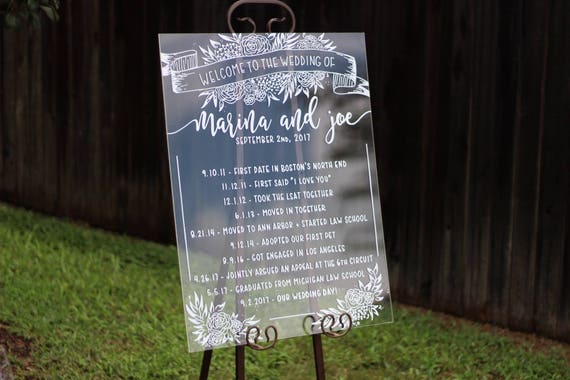 WELCOME TO THE WEDDING OF
marina and joe
SEPTEMBER 2ND, 2017
9.10.11 - FIRST DATE IN BOSTON'S NORTH END
11.12.11 - FIRST SAID "I LOVE YOU"
12.1.12 - TOOK THE LSAT TOGETHER
6.1.13 - MOVED IN TOGETHER
8.21.14 - MOVED TO ANN ARBOR + STARTED LAW SCHOOL
9.12.14 - ADOPTED OUR FIRST PET
8.9.16 - GOT ENGAGED IN LOS ANGELES
4.26.17 - JOINTLY ARGUED AN APPEAL AT THE 6TH CIRCUIT
5.5.17 - GRADUATED FROM MICHIGAN LAW SCHOOL
9.2.2017 - OUR WEDDING DAY!